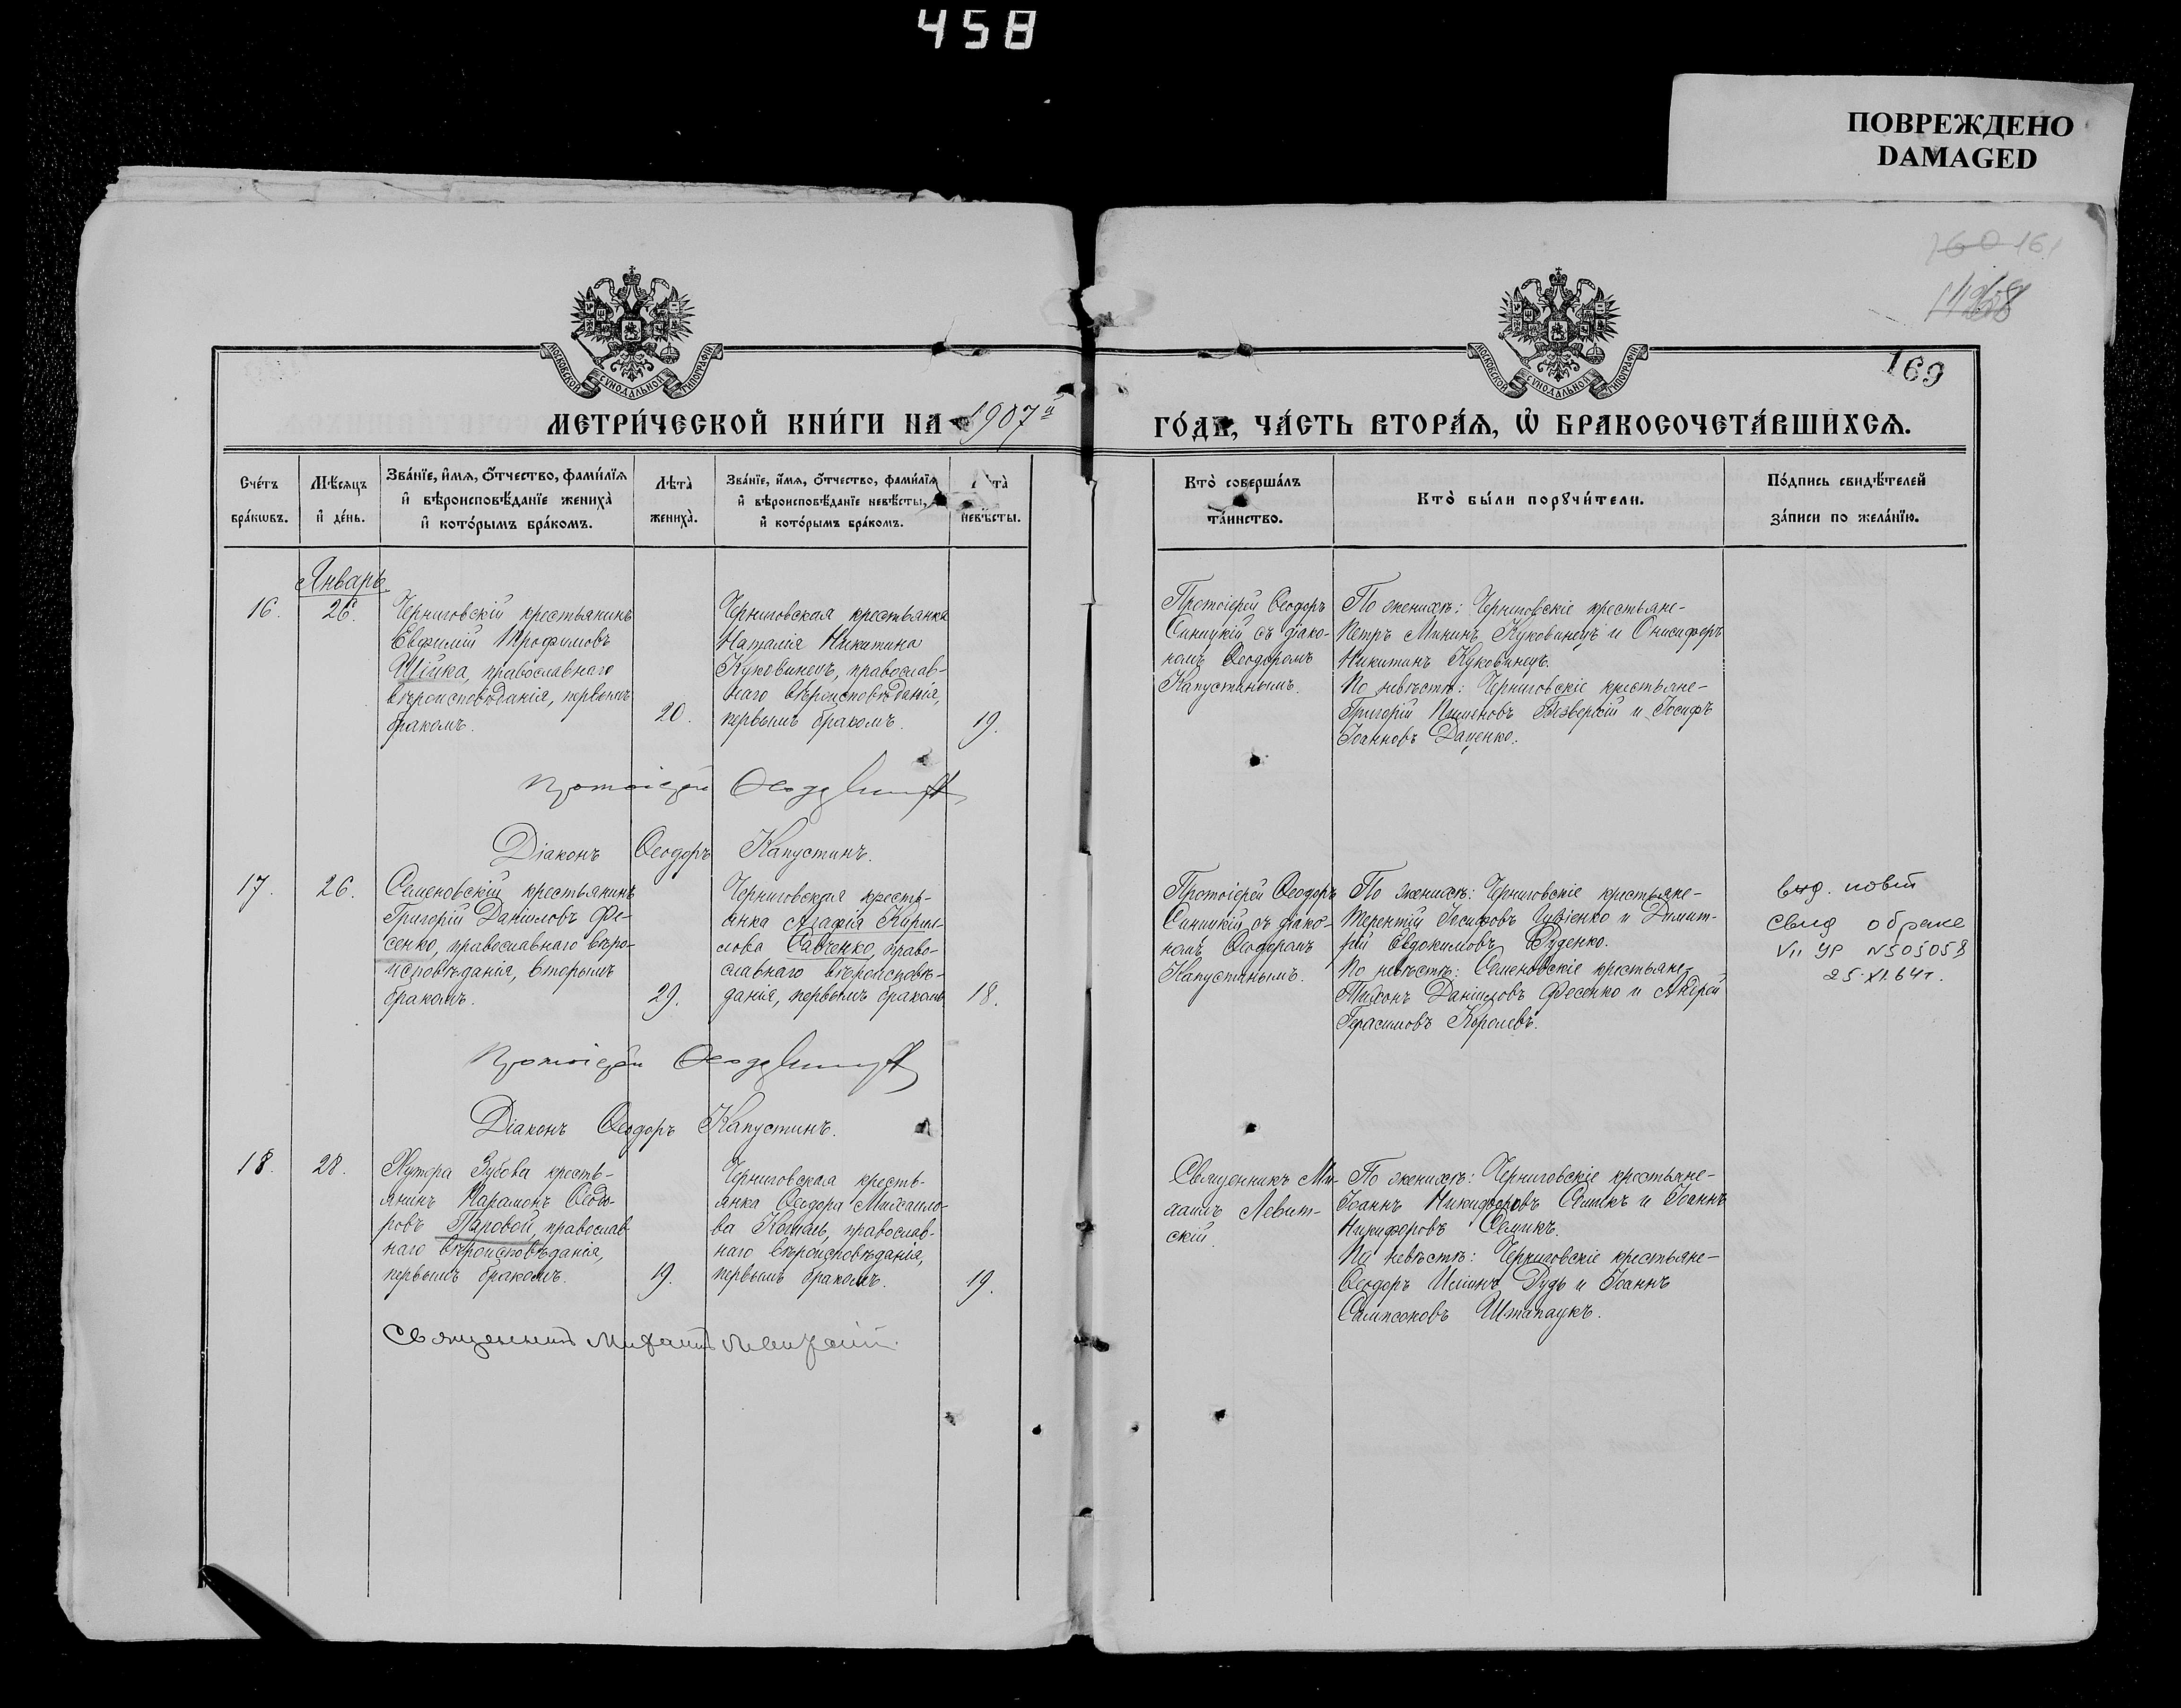 458
ПОВРЕЖДЕНО
DAMAGED
160 161
169
МОСКОВСКОЙ СУНОДАЛЬНОЙ ТИПОГРАФІИ
МОСКОВСКОЙ СУНОДАЛЬНОЙ ТИПОГРАФІИ
МЕТРИ́ЧЕСКОЙ КНИ́ГИ НА 1907й
ГО́ДЪ, ЧА́СТЬ ВТОРА́Ѧ, Ѡ҆ БРАКОСОЧЕТА́ВШИХСѦ.
Сче́тъ бра́кѡвъ.
Мѣ́сѧцъ и҆ де́нь.
Зва́нїе, и҆́мѧ, ѻ҆́тчество, фами́лїѧ
и҆ вѣроисповѣ́данїе жениха̀
и҆ кото́рымъ бра́комъ.
Лѣта̀ жениха̀.
Зва́нїе, и҆́мѧ, ѻ҆́тчество, фами́лїѧ
и҆ вѣроисповѣ́данїе невѣ́сты,
и҆ кото́рымъ бра́комъ.
Лѣта̀ невѣ́сты.
Кто̀ соверша́лъ та́инство.
Кто̀ бы́ли порꙋчи́тели.
По́дпись свидѣ́телей
за́писи по жела́нїю.
Январь
16.
26.
Черниговскій крестьянинъ
Евфимій Трофимовъ
Шійка, православнаго
вѣроисповѣданія, первымъ
бракомъ.
20.
Черниговская крестьянка
Наталія Никитина
Куковинецъ, православ-
наго вѣроисповѣданія,
первымъ бракомъ.
19.
Протоіерей Ѳеодоръ
Синицкій съ діако-
номъ Ѳеодоромъ
Капустинымъ.
По женихѣ: Черниговскіе крестьяне-
Петръ Мининъ Куковинецъ и Онисифоръ
Никитинъ Куковинецъ.
По невѣстѣ: Черниговскіе крестьяне-
Григорій Пименовъ Безверхій и Іосифъ
Іоанновъ Даценко.
Протоіерей Ѳеодоръ
Діаконъ Ѳеодоръ Капустинъ.
17.
26.
Семеновскій крестьянинъ
Григорій Даніиловъ Фе-
сенко, православнаго вѣро-
исповѣданія, вторымъ
бракомъ.
29.
Черниговская кресть-
янка Агафія Кирил-
лова Савченко, право-
славнаго вѣроисповѣ-
данія, первымъ бракомъ
18.
Протоіерей Ѳеодоръ
Синицкій съ діако-
номъ Ѳеодоромъ
Капустинымъ.
По женихѣ: Черниговскіе крестьяне-
Терентій Іосифовъ и Димит-
рій Евдокимовъ Руденко.
По невѣстѣ: Семеновскіе крестьяне-
Тихонъ Даніиловъ Фесенко и Андрей
Герасимовъ Королевъ.
выд. повт
свид о браке
VII УР N505058
25.XI.64г.
Протоіерей Ѳеодоръ
Діаконъ Ѳеодоръ Капустинъ.
18.
28.
Хутора Зубова кресть-
янинъ Парамонъ Ѳедо-
ровъ Паровой, православ
наго вѣроисповѣданія,
первымъ бракомъ.
19.
Черниговская кресть-
янка Ѳеодора Михаило-
ва Коваль, православ-
наго вѣроисповѣданія,
первымъ бракомъ.
19.
Священникъ Ми-
хаилъ Левит-
скій.
По женихѣ: Черниговскіе крестьяне-
Іоаннъ Никифоровъ Семикъ и Іоаннъ
Никифоровъ Семикъ.
По невѣстѣ: Черниговскіе крестьяне-
Ѳеодоръ Ильинъ Рудь и Іоаннъ
Сампсоновъ Штапаукъ.
Священникъ Михаилъ Левитскій.